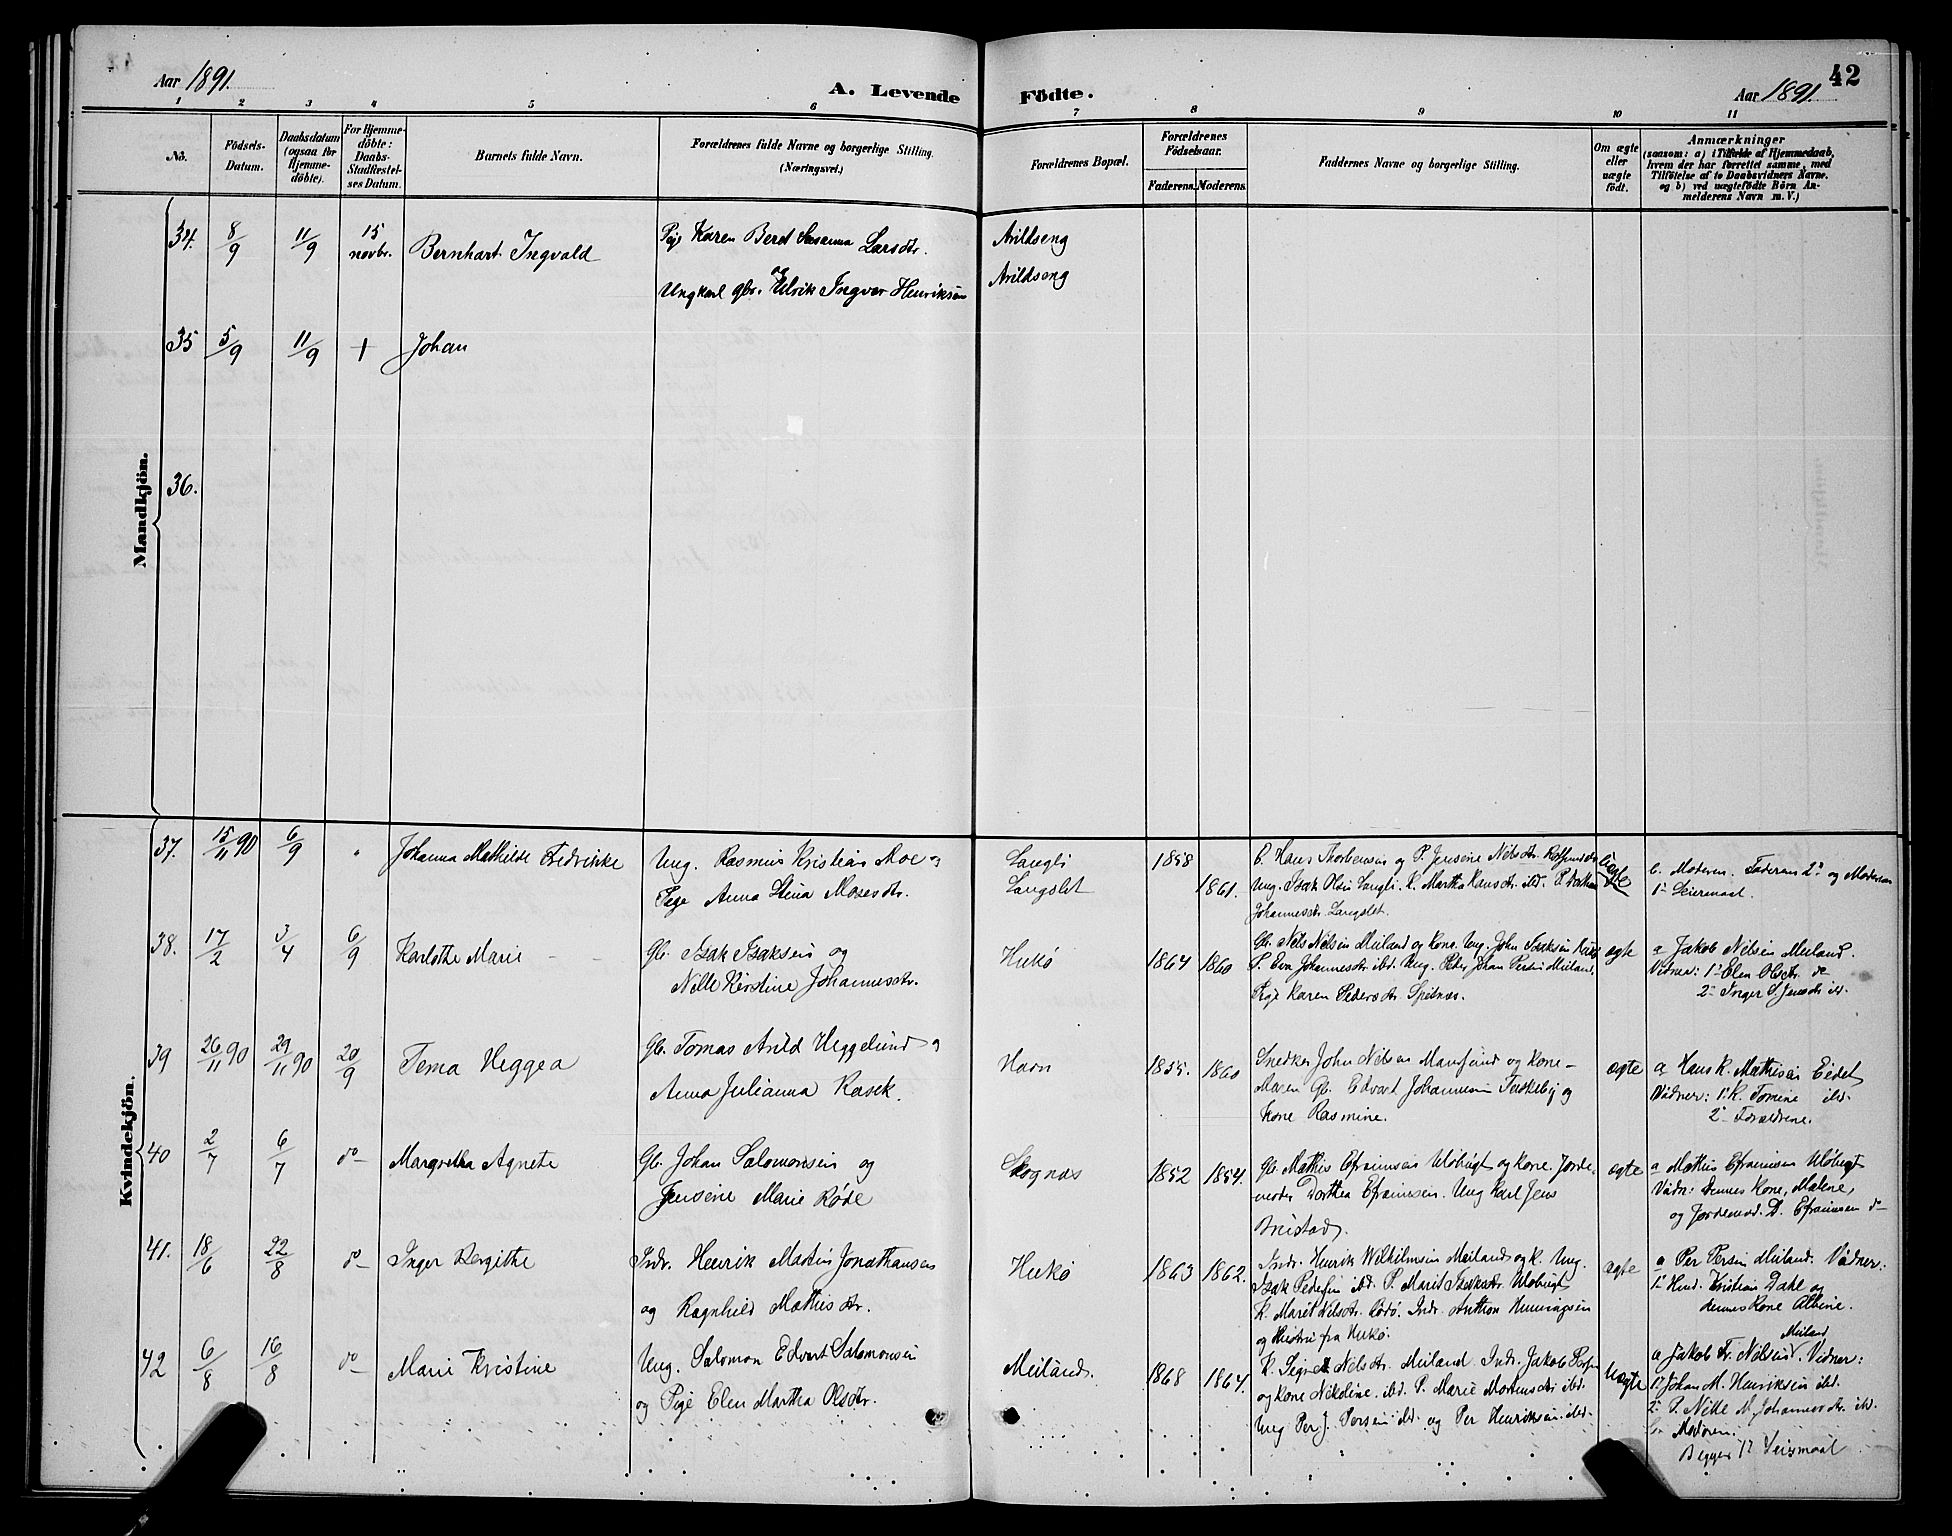 Aar 1891.
A. Levende Födte.
Aar 1891.
42
1 2 3 4 5 6 7 8 9 10 11
No.
Födsels-
Datum.
Daabsdatum
(ogsaa for
Hjemme-
döbte).
For Hjemme-
döbte:
Daabs-
Stadfæstel-
ses Datum.
Barnets fulde Navn.
Forældrenes fulde Navne og borgerlige Stilling.
(Næringsvei.)
Forældrenes Bopæl.
Forældrenes
Födselsaar.
Faderens. Moderens.
Faddernes Navne og borgerlige Stilling.
Om ægte
eller
uægte
födt.
Anmærkninger
(saasom: a) i Tilfælde af Hjemmedaab,
hvem der har forrettet samme, med
Tilföielse af to Daabsvidners Navne.
og b) ved uægtefödte Börn An-
melderens Navn m. V.)
Mandkjön.
34. 8/9 11/9 15 novbr. Bernhart Ingvald
Pige Karen Beret Susanna Larsdtr.
og
Ungkarl gbr. Ulrik Ingvar Henriksen
Arildseng
Arildseng
35 5/9 11/9 + Johan
36.
Kvindekjön.
37. 15/11 90 6/9 " Johanna Mathilde Fredrikke
Ung. Rasmus Kristian Moe og
Pige Anna Stina Mosesdtr.
Langli
Langslet
1858
1861.
C. Hans Thorbensen og P. Jensine Nelsdtr.
Ung. Isak Olsen Langli. K. Martha Hansdtr. ibd.
Johannesdtr. Langslet.
Uægte
b. Moderen. Faderens 2det og Moderens
1ste Leiermaal.
38. 17/2 3/4 6/9 Karlothe Marie
Gb. Isak Isaksen og
Nille Kirstine Johannesdtr.
Hukö
1864 1860
Gb. Nels Nelsen Meiland og Kone. Ung. John Isaksen
P. Eva Johannesdtr ibd. Ung. Peder Johan Persen Meiland.
Pige Karen Pedersdtr. Spilnæs.
ægte
a Jakob Nilsen Meiland.
Vidner: 1. Elen Olsdtr. do
2. Inger S. Jensdtr ibd.
39 26/11 90 29/11 90 20/9 Tema Heggea
Gb. Tomas Arild Heggelund og
Anna Julianna Rasek.
Havn
1855. 1860
Snedker John Nilsen Mansund og Kone
Maren Gb. Edvart Johannesen Finkeby og
Kone Rasmine.
ægte
a Hans K. Mathisen Eidet
Vidner: 1. K. Tomine ibd.
2. Forældrene.
40 2/7 6/7 do Margretha Agnete
Gb. Johan Salomonsen og
Jensine Marie Röde
Skognæs
1852 1854.
Gb. Mathis Efraimsen Ulöbugt og Kone. Jorde-
moder Dorthea Efraimsen. Ung Karl Jens
ægte
a Mathis Efraimsen Ulöbugt
Vidn: dennes Kone, Malene,
og Jordemod. D. Efraimsen do
41. 18/6 22/8 do Inger Bergithe
Indr. Henrik Martin Jonathansen
og Ragnhild Mathisdtr.
Hukö
1863 1862.
Indr. Henrik Wilhilmsen Meiland og K. Ung.
Isak Pedersen ibd. P. Marit Isaksdtr. Ulobugt
K. Marit Nilsdtr. Rödö. Indr. Anthon Henningsen
og Hustru fra Hukö.
ægte
a Per Persen Meiland. Vidner:
1. Hmd. Kristian Dahl og
dennes Kone Albine.
42 6/8 16/8 do Marie Kristine
Ung. Salomon Edvart Salomonsen
og Pige Elen Martha Olsdtr.
Meiland.
1868 1864.
K. Sigrid Nelsdtr. Meiland. Indr. Jakob Persen
og Kone Nikoline. ibd. P. Marie Mortensdtr ibd.
Ung Per J. Persen ibd. og Per Henriksen. ibd.
Uægte
Meiland
a Jakob Fr. Nilsen. Vidner:
1. Johan M. Henriksen ibd.
2. P. Nille M. Johannesdtr. ibd.
b. Moderen.
Begges 1ste Leiermaal